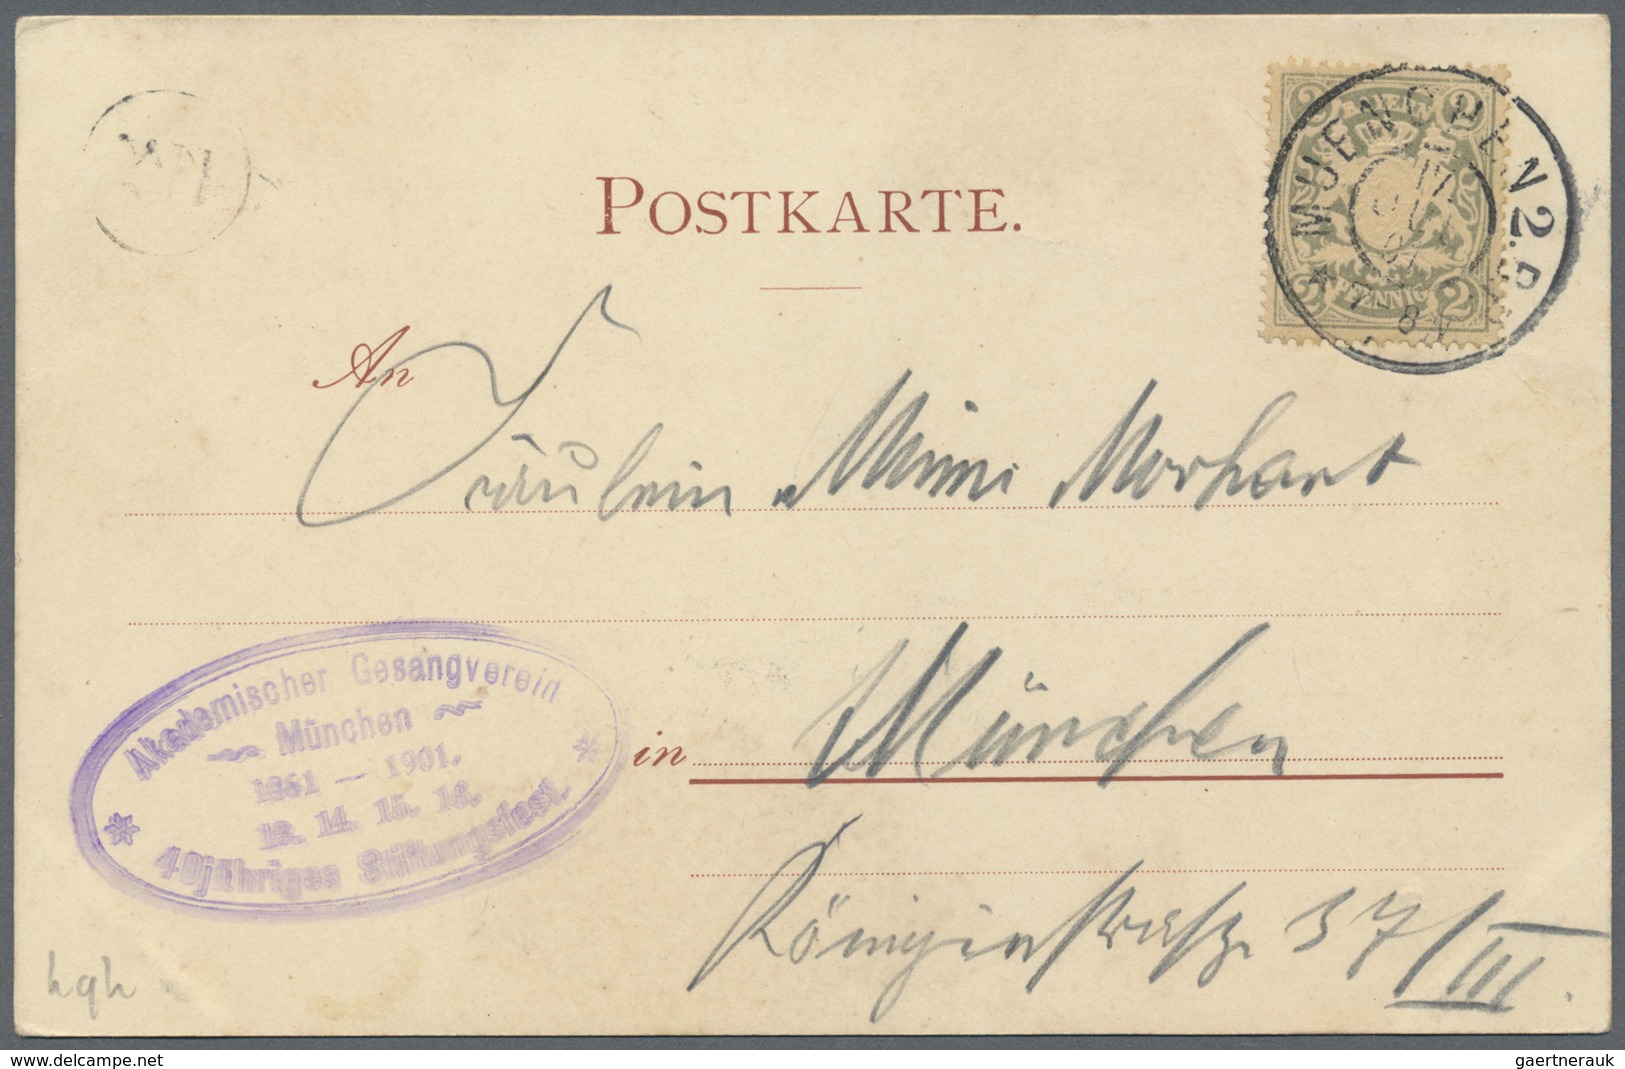 POSTKARTE.
2 BAYERN 2
2 PFENNIG 2
MUENCHEN 2. B.P.
17 JUL 01
7-8 N
An
Fräulein Mimi Morhart
in München
Königinstrasse 37/III.
Akademischer Gesangverein
München
1861 — 1901.
13. 14. 15. 16.
40jähriges Stiftungsfest.
hgh
www.delcampe.net
gaertnerauk